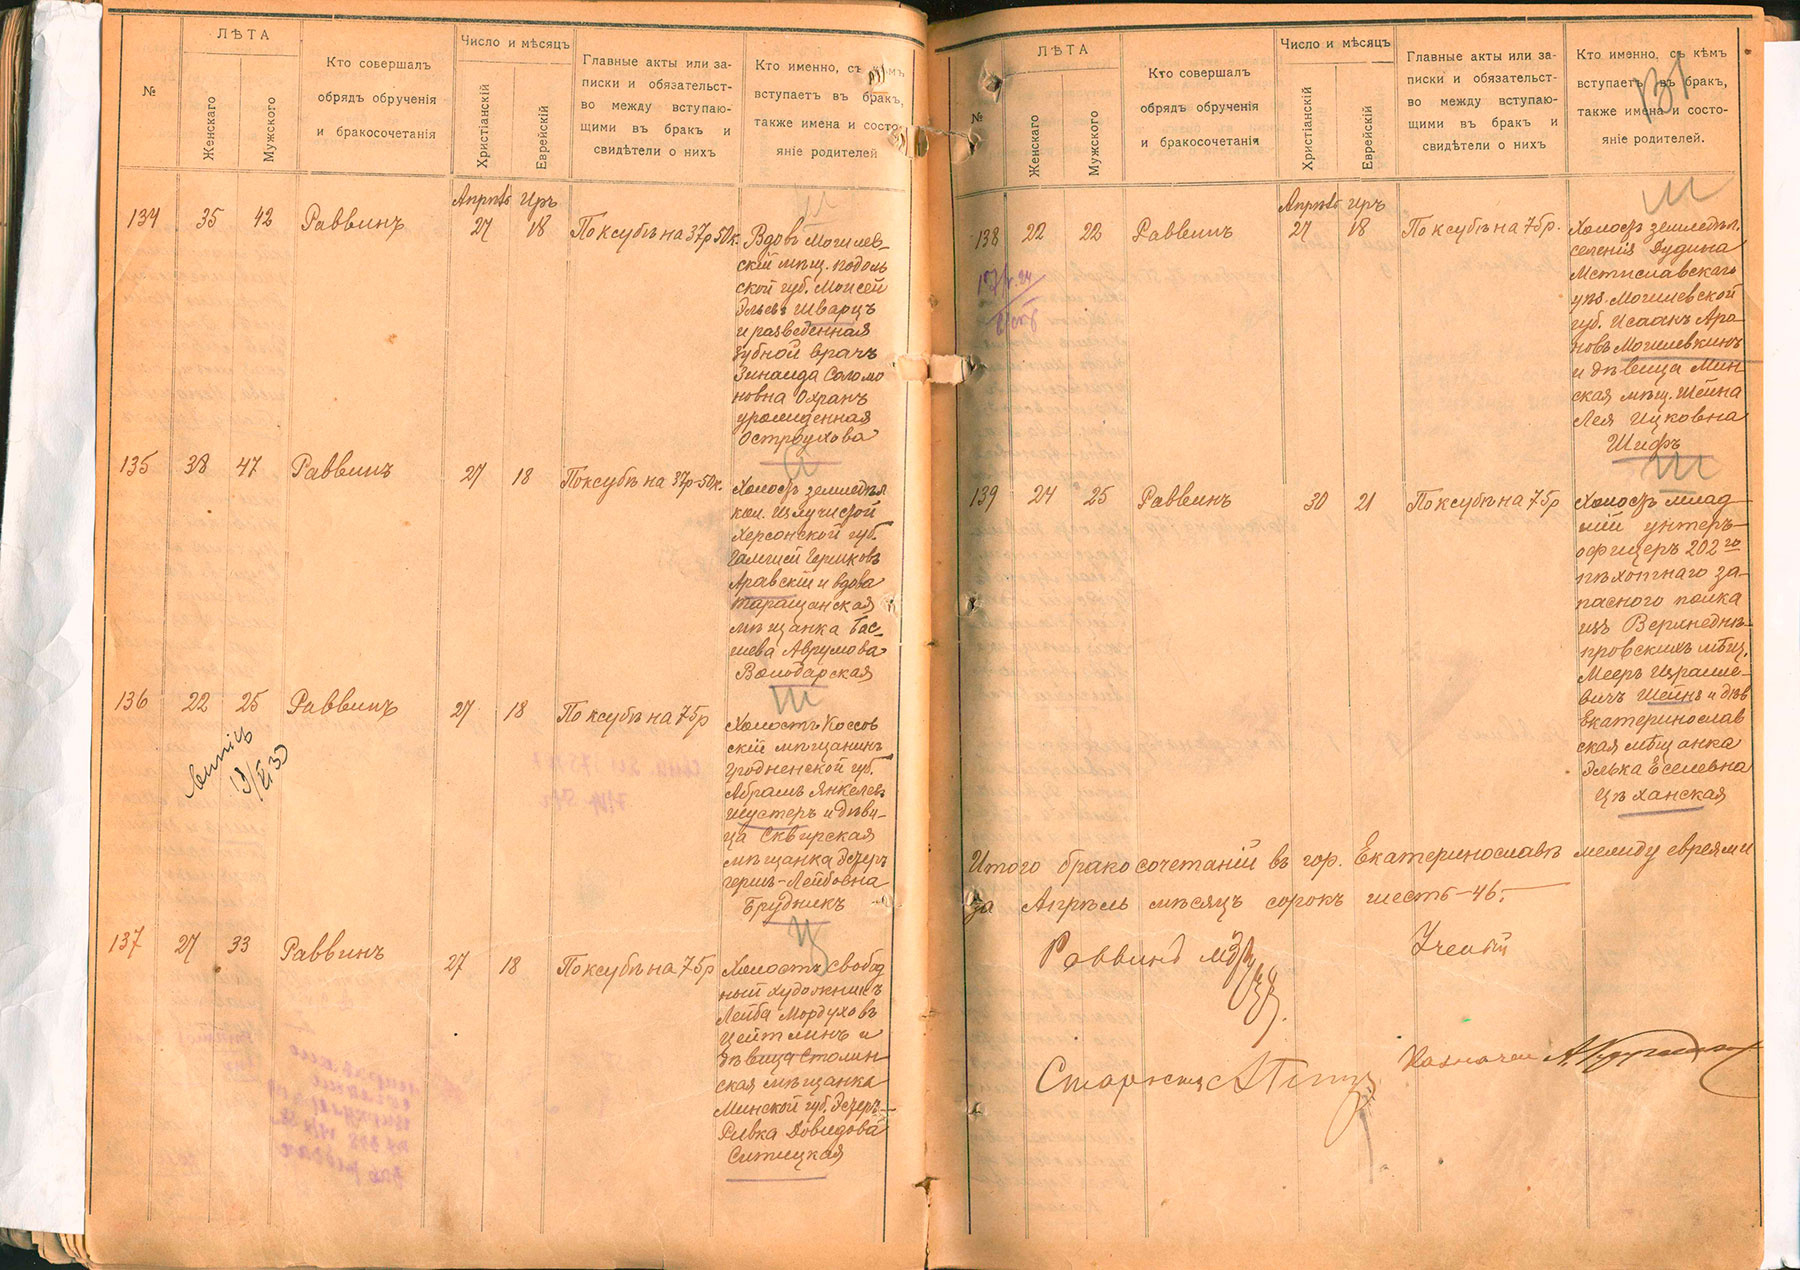 №
ЛѢТА
Женскаго
Мужского
Кто совершалъ
обрядъ обрученія
и бракосочетанія
Число и мѣсяцъ
Христіанскій
Еврейскій
Главные акты или за-
писки и обязательст-
во между вступаю-
щими въ бракъ и
свидѣтели о нихъ
Кто именно, съ кѣмъ
вступаетъ въ бракъ,
также имена и состо-
яніе родителей
Апрѣль Иръ
134 35 42 Раввинъ 27 18 По ксубѣ на 37р 50к.
Вдовъ Могилев-
скій мѣщ. подоль
ской губ. Моисей
Эльевъ Шварцъ
и разведенная
зубной врачъ
Зинаида Соломо
новна Охранъ
урожденная
Остроухова
135 38 47 Раввинъ 27 18 По ксубѣ на 37р-50к.
Холостъ земледѣл
кол. Излучистой
Херсонской губ.
Гершковъ
Аравскій и вдова
Таращанская
мѣщанка Бас-
шева Аврумова
Володарская
136 22 25 Раввинъ 27 18 По ксубѣ на 75р
Холостъ Коссов
скій мѣщанинъ
Гродненской губ.
Абрамъ Янкелевъ
Шустеръ и дѣви-
ца Сквирская
мѣщанка Эстеръ
герш-Лейбовна
Брудникъ
137 27 33 Раввинъ 27 18 По ксубѣ на 75р
Холостъ свобод
ный художникъ
Лейба Мордуховъ
Цейтлинъ и
дѣвица Столин
ская мѣщанка
Минской губ. Эстеръ-
Ривка Довидова
Ситицкая
№
ЛѢТА
Женскаго
Мужского
Кто совершалъ
обрядъ обрученія
и бракосочетанія
Число и мѣсяцъ
Христіанскій
Еврейскій
Главные акты или за-
писки и обязательст-
во между вступаю-
щими въ бракъ и
свидѣтели о нихъ
Кто именно, съ кѣмъ
вступаетъ въ бракъ,
также имена и состо-
яніе родителей.
131
Апрѣль Иръ
138 22 22 Раввинъ 27 18 По ксубѣ на 75р.
Холостъ земледѣл.
селенія Дудина
Мстиславскаго
уѣз. Могилевской
губ. Исаакъ Аро
новъ Могилевкинъ
и дѣвица Мин
ская мѣщ. Шейна
Лея Ицковна
Шифъ
139 24 25 Раввинъ 30 21 По ксубѣ на 75р
Холостъ млад
шій унтеръ-
офицеръ 202го
пѣхотнаго за-
паснаго полка
изъ Верхнеднѣ-
провскихъ мѣщ.
Мееръ Израиле-
вичъ Шейнъ и дѣв
Екатеринослав
ская мѣщанка
Элька Еселевна
Цѣханская
Итого бракосочетаній въ гор. Екатеринославѣ между евреями
за Апрѣль мѣсяцъ сорокъ шесть-46.-
Раввинъ
Ученый
Староста
Казначей